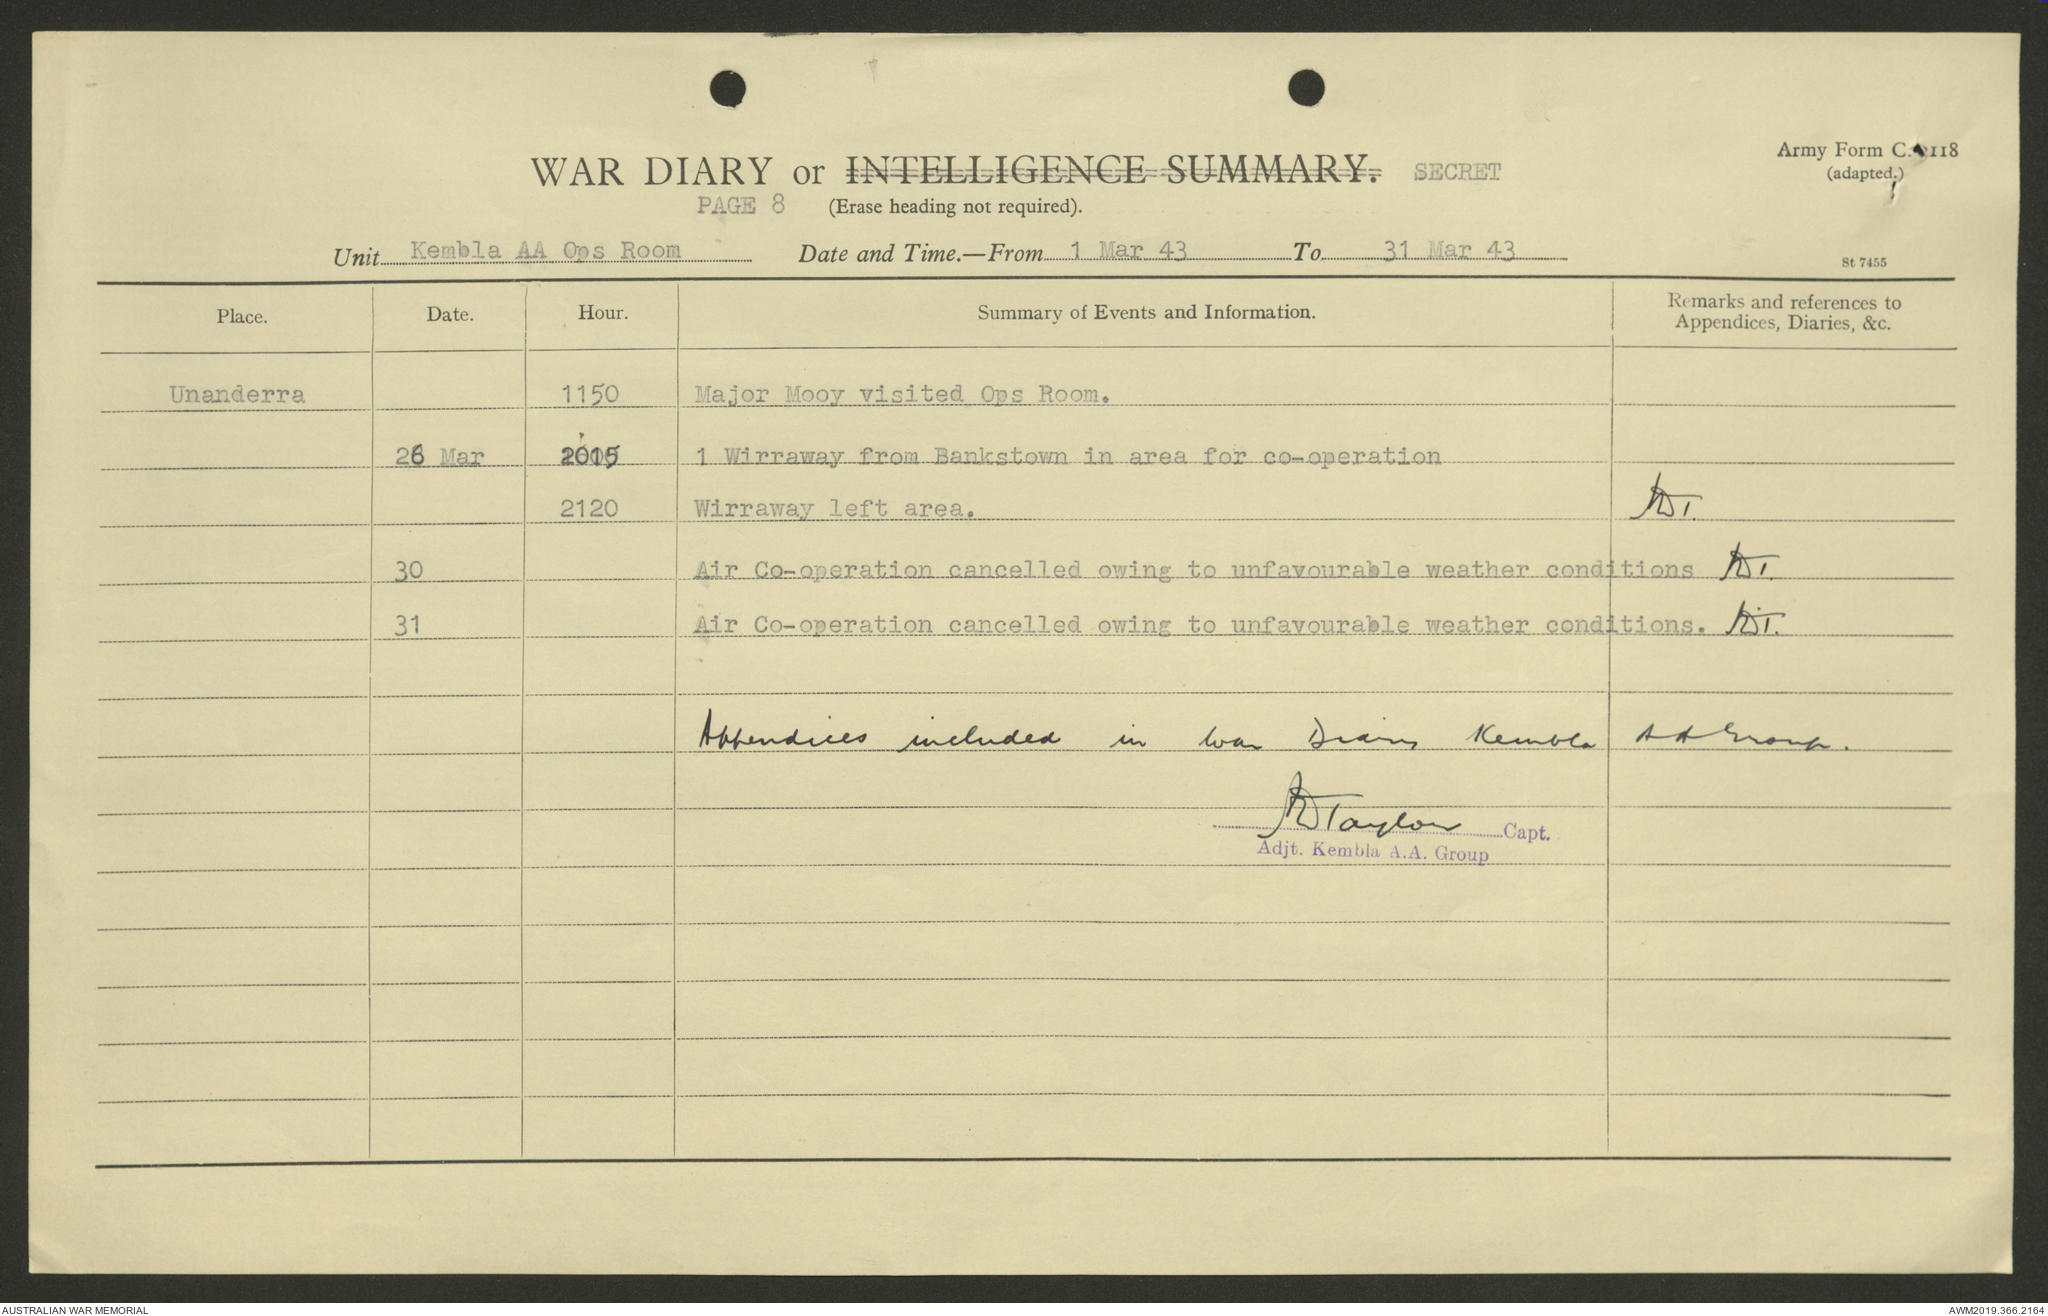 Army Form C. 2118
(adapted.)
WAR DIARY or INTELLIGENCE SUMMARY. SECRET
PAGE 8 (Erase heading not required).
Unit Kembla AA Ops Room Date and Time.—From 1 Mar 43 To 31 Mar 43
St 7455
Place. Date. Hour. Summary of Events and Information. Remarks and references to
Appendices, Diaries, &c.
Unanderra 1150 Major Mooy visited Ops Room.
26 Mar 2015 1 Wirraway from Bankstown in area for co-operation
2120 Wirraway left area.
30 Air Co-operation cancelled owing to unfavourable weather conditions
31 Air Co-operation cancelled owing to unfavourable weather conditions.
Appendices included in War Diary Kembla AA Group.
Taylor Capt.
Adjt. Kembla A.A. Group
AUSTRALIAN WAR MEMORIAL AWM2019.366.2164